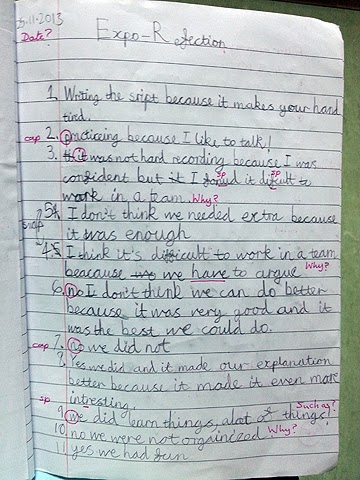 5-11-2013
Date?
Expo-Reflection
1. Writing the sript because it makes your hand
tird.
cap 2. practiceing because I like to talk!
3. it was not hard recording because I was
confident but it I found it difficult to
sp sp
work in a team. Why?
5. I don't think we needed extra because
swap
it was enough
4. I think it's difficult to work in a team
beacause we have to argue Why?
6. no I don't think we can do better
because it was very good and it
was the best we could do.
cap 7. no we did not
8. Yes we did and it made our explanation
better because it made it even more
sp intresting.
Such as?
9. we did learn things, alat of things!
10. no we were not orgainized. Why?
11 yes we had fun